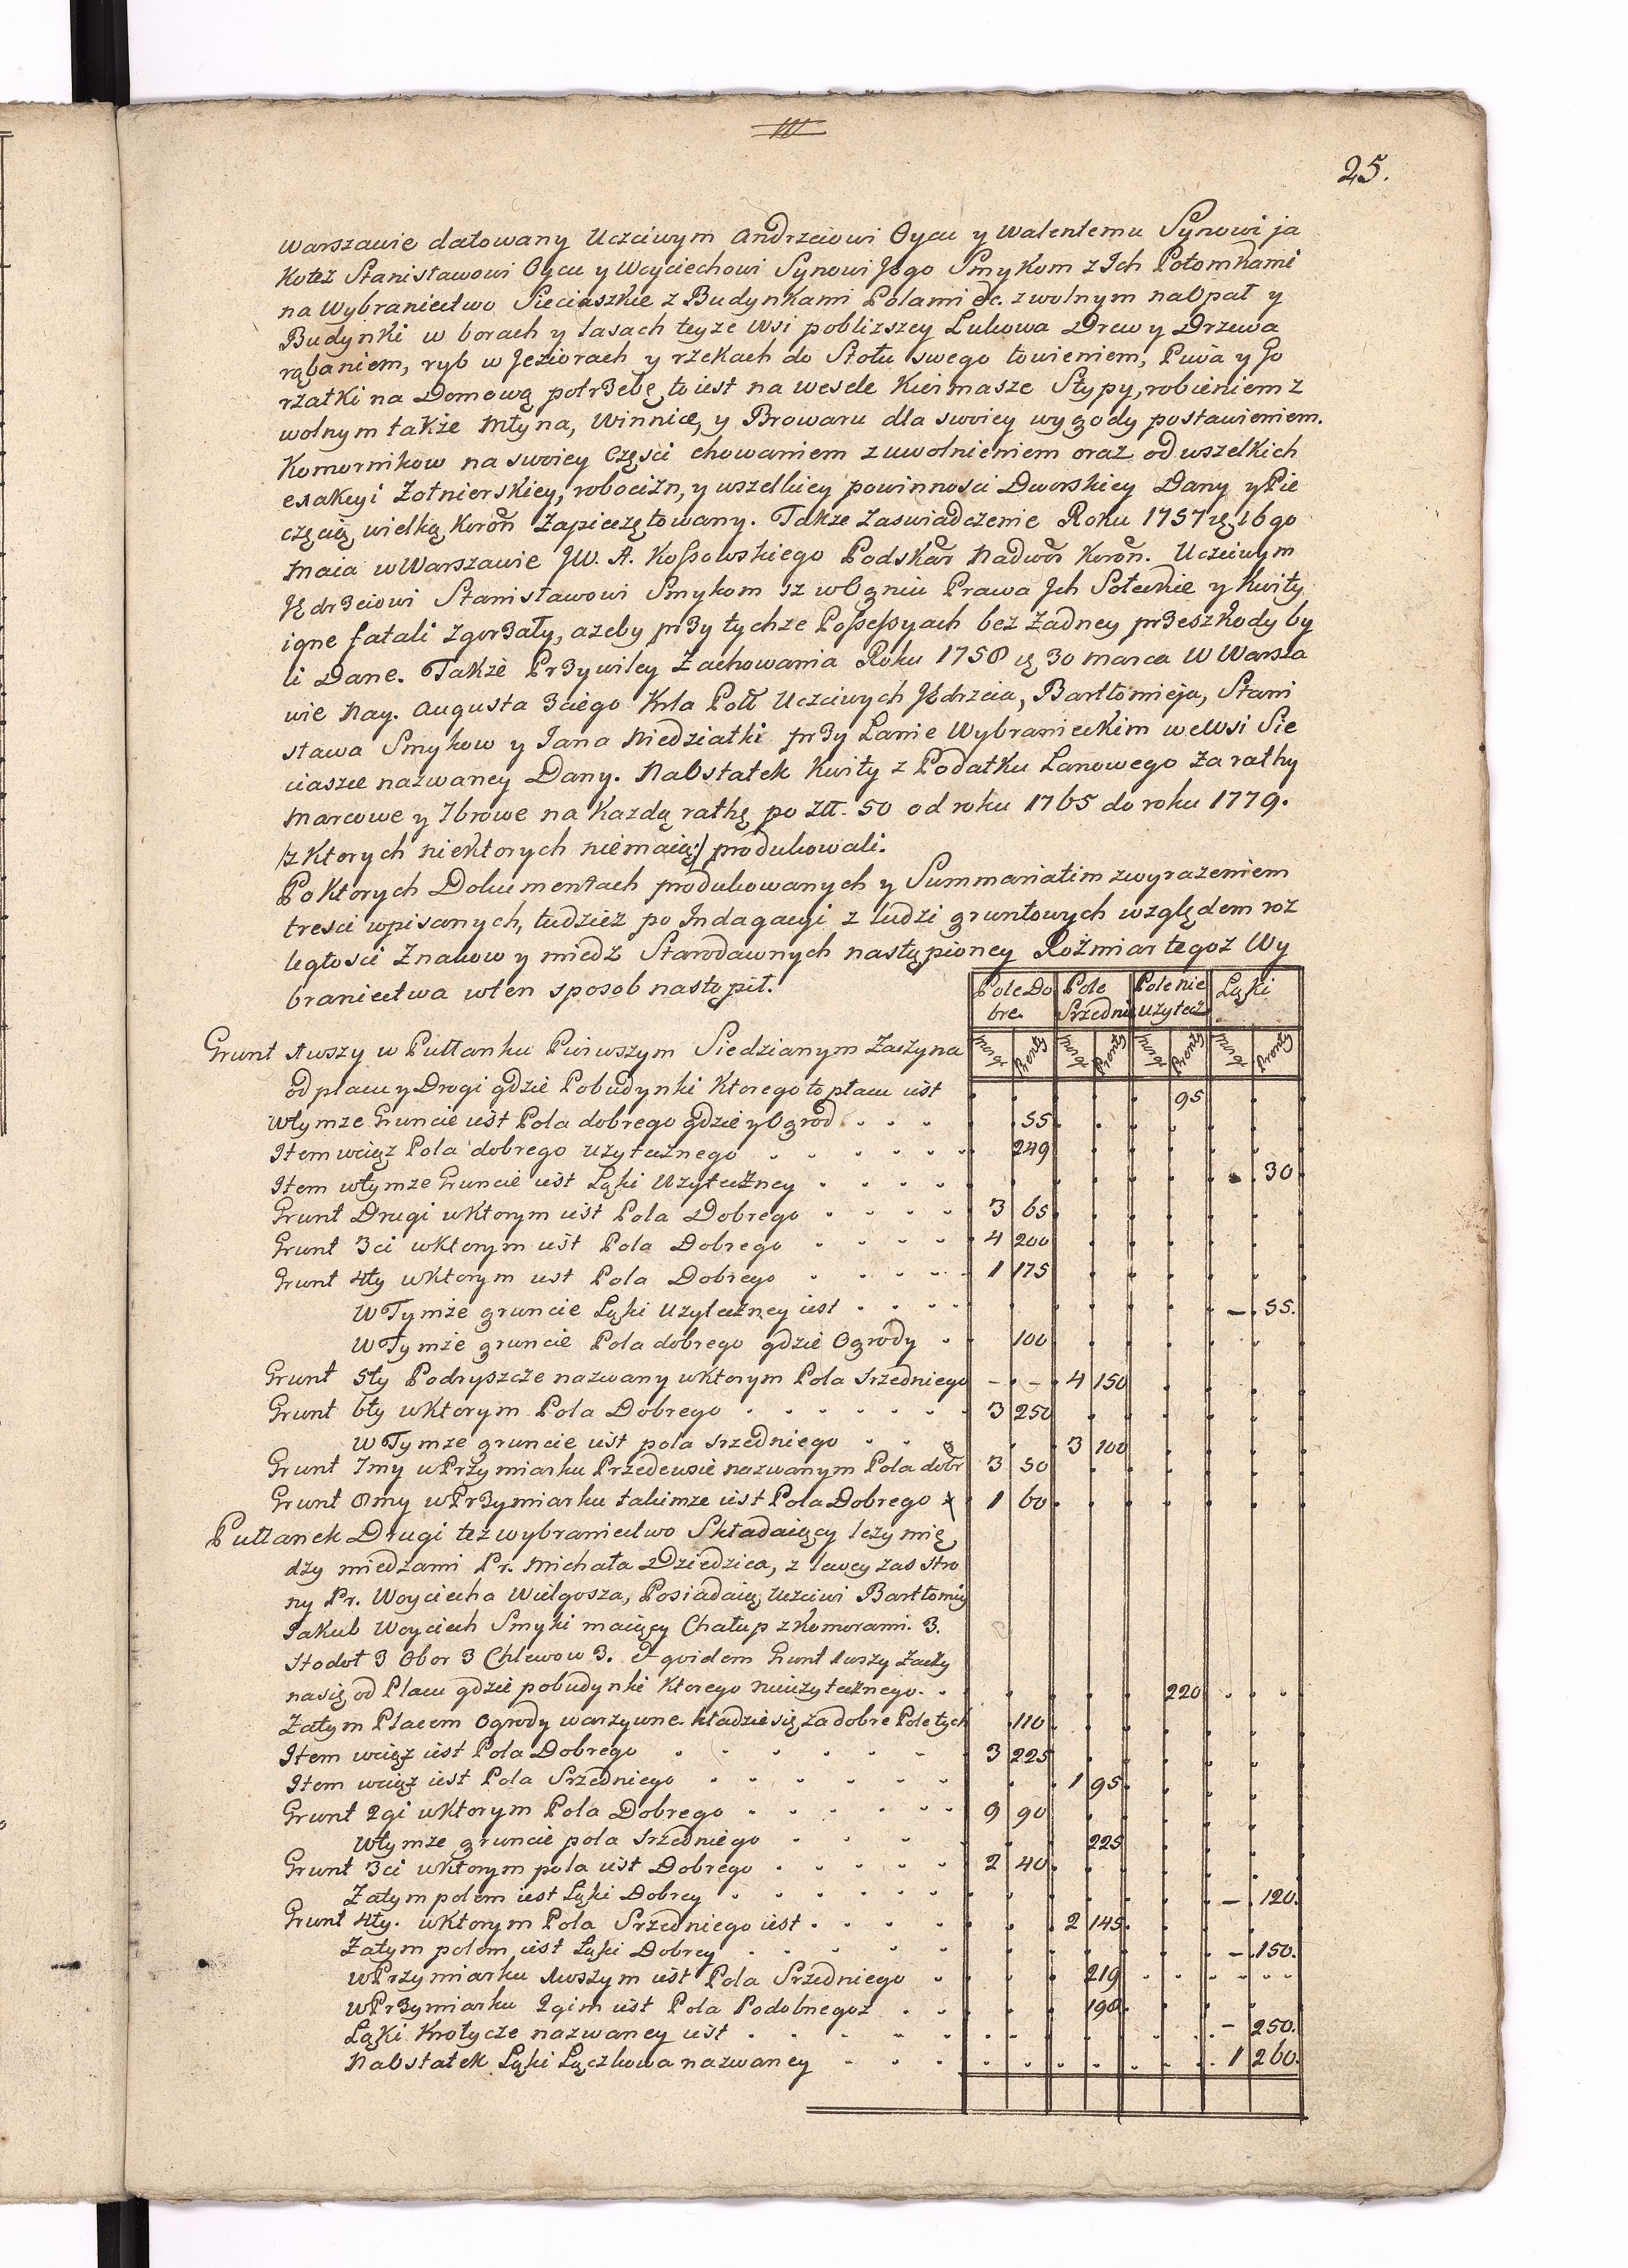 25.
Warszawie datowany Uczciwym Andrzeiowi Oycu y Walentemu Synowi ja
kotez Stanisławowi Oycu y Woyciechowi Synowi Jego Smykom z Ich Potomkami
na Wybraniectwo Sieciaszkie z Budynkami Polami &c. z wolnym na Opał y
Budynki w borach y lasach teyze Wsi poblizszey Lukowa Drew y Drzewa
rąbaniem, ryb w Jeziorach y rzekach do Stołu swego łowieniem, Piwa y Go
rzałki na Domową potrzebę, to iest na wesele Kiermasze Stypy, robieniem z
wolnym także Młyna, Winnice, y Browaru dla swoiey wygody postawieniem.
Komornikow na swoiey Części chowaniem z uwolnieniem oraz od wszelkich
exakcyi Zołnierskiey, robocizn, y wszelkiey powinnosci Dworskiey Dany y Pie
częcią wielką Koron Zapieczętowany. Takze Zaswiadczenie Roku 1757 16go
Maia w Warszawie JW. A. Kossowskiego Podskar Nadwor Koron. Uczciwym
Jędrzeiowi Stanisławowi Smykom iz w Ogniu Prawa Jch Sołeckie y Kwity
igne fatali zgorzały, azeby przy tychze Possessyach bez Zadney przeszkody by
li Dane. Takze Przywiley Zachowania Roku 1758 30 Marca w Warsza
wie Nay. Augusta 3ciego Krla Poll Uczciwych Jędrzeia, Bartłomieja, Stani
sława Smykow y Jana Niedziałki przy Łanie Wybranieckim we Wsi Sie
ciaszce nazwaney Dany. Naostatek Kwity z Podatku Łanowego Za rathy
Marcowe y 7browe na Kazdą rathę po Złł. 50 od roku 1765 do roku 1779.
/z Ktorych niektorych niemaią:/ produkowali.
Po Ktorych Dokumentach produkowanych y Summariatim z wyrazeniem
tresci wpisanych, tudziez po Indagacyi z ludzi gruntowych względem roz
ległosci Znakow y miedz Starodawnych nastąpioney Rozmiar tegoz Wy
braniectwa w ten sposob nastąpił.
Pole Do Pole Pole nie Łąki
bre Srzednie uzytecz
Morgi Pręnty Morgi Pręnty Morgi Pręnty Morgi Pręnty
Grunt 1wszy w Pułłanku Pierwszym Siedzianym Zaczyna
od placu y Drogi gdzie Pobudynki Ktorego to placu iest 95
W tymze Gruncie iest Pola dobrego gdzie y Ogrod 55
Item wciąz Pola dobrego uzytecznego 249
Item w tymze Gruncie iest Łąki Uzyteczney - 30
Grunt Drugi w Ktorym iest Pola Dobrego 3 65
Grunt 3ci w Ktorym iest Pola Dobrego 4 200
Grunt 4ty w Ktorym iest Pola Dobrego 1 175
W Tymże gruncie Łąki Uzyteczney iest - 55.
W Tymże gruncie Pola dobrego gdzie Ogrody 100
Grunt 5ty Podryszcze nazwany w ktorym Pola Srzedniego - - 4 150
Grunt 6ty w Ktorym Pola Dobrego 3 250
W Tymze gruncie iest pola srzedniego 3 100
Grunt 7my w Przymiarku Przedewsie nazwanym Pola dobr 3 50
Grunt 8my w Przymiarku takimze iest Pola Dobrego 1 60
Pułłanek Drugi tez wybraniectwo Składaiący lezy mię
dzy miedzami Pr. Michała Dziedzica, z lewey zas stro
ny Pr. Woyciecha Wielgosza, Posiadaią Uczciwi Bartłomiy
Jakub Woyciech Smyki maiący Chałup z Komorami 3.
Stodoł 3 Obor 3 Chlewow 3. Et qvidem Grunt 1wszy Zaczy
na się od Placu gdzie pobudynki Ktorego nieuzytecznego 220
Zatym Placem Ogrody warzywne kładzie się za dobre Pole tych 110
Item wciąz iest Pola Dobrego 3 225
Item wciąz iest Pola Srzedniego 1 95
Grunt 2gi w Ktorym Pola Dobrego 9 90
W tymze gruncie pola srzedniego 225
Grunt 3ci w Ktorym pola iest Dobrego 2 40
Zatym polem iest Łąki Dobrey - 120.
Grunt 4ty. w Ktorym Pola Srzedniego iest 2 145
Zatym polem iest Łąki Dobrey - 150.
w Przymiarku 1wszym iest Pola Srzedniego 219
w Przymiarku 2gim iest Pola Podobnegoz 190
Łąki Krotycze nazwaney iest - 250.
Naostatek Łąki Łączkowa nazwaney 1 260.